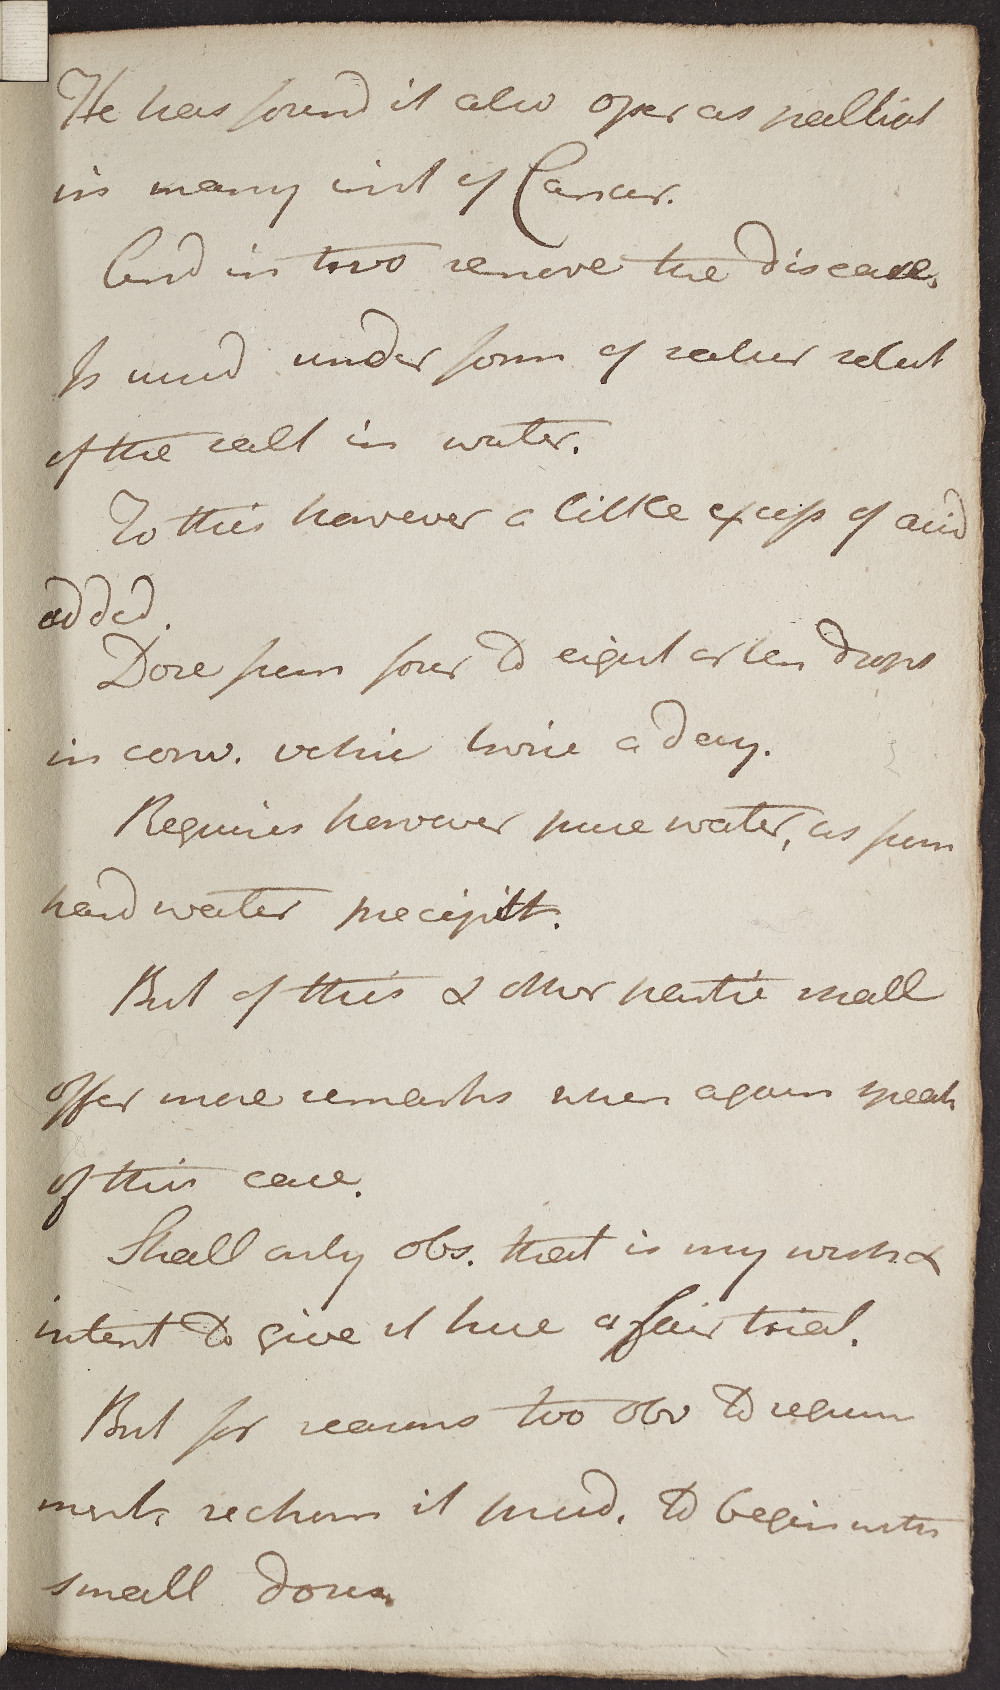 He has found it also oper as palliat
in many inst of Cancer.
And in two remove the disease.
Is used under form of satur solut
of the salt in water.
To this however a little excess of acid
added.
Dose from four to eight or ten drops
in conv. vehic twice a day.
Requires however pure water, as from
hard water precipitt.
But of this & other partic shall
offer more remarks when again speak
of this case.
Shall only obs. that is my wish &
intent to give it here a fair trial.
But for reasons too obv to requir
ment. reckon it prud. to begin with
small doses.